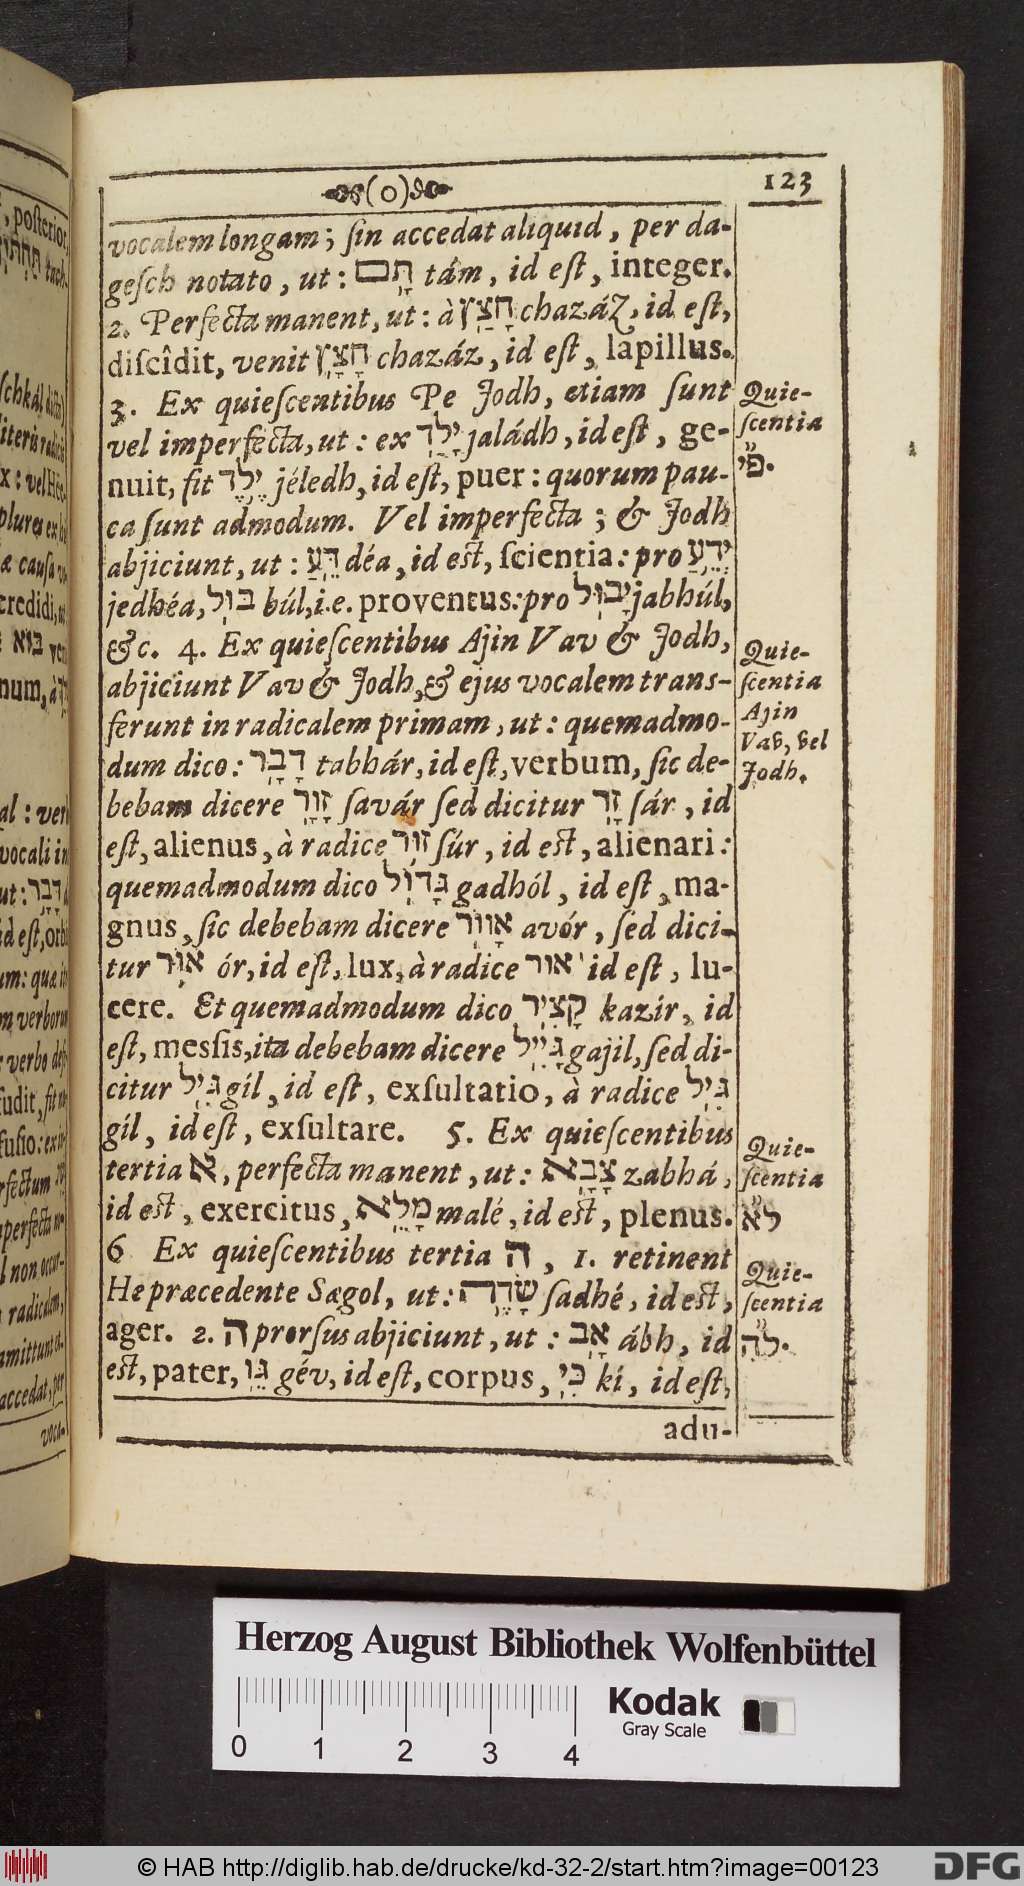 (o)
123
vocalem longam; ſin accedat aliquid, per da-
geſch notato, ut: תָּם tám, id eſt, integer.
2. Perfecta manent, ut: à חָצַץ chazáz, id eſt,
diſcîdit, venit חָצָץ chazáz, id eſt, lapillus.
3. Ex quieſcentibus Pe Jodh, etiam ſunt
vel imperfecta, ut: ex יָלַד jaládh, id eſt, ge-
nuit, fit יֶלֶד jéledh, id eſt, puer: quorum pau-
ca ſunt admodum. Vel imperfecta; & Jodh
abjiciunt, ut: דֵּעַ déa, id eſt, ſcientia: pro יֶדַע
jedhéa, בוּל búl, i.e. proventus: pro יָבוּל jabhúl,
&c. 4. Ex quieſcentibus Ajin Vav & Jodh,
abjiciunt Vav & Jodh, & ejus vocalem trans-
ferunt in radicalem primam, ut: quemadmo-
dum dico: דָבָר tabhár, id eſt, verbum, ſic de-
bebam dicere זָוָר ſavár ſed dicitur זָר ſár, id
eſt, alienus, à radice זוּר ſúr, id eſt, alienari:
quemadmodum dico גָּדוֹל gadhól, id eſt, ma-
gnus, ſic debebam dicere אָווֹר avór, ſed dici-
tur אוֹר ór, id eſt, lux, à radice אור id eſt, lu-
cere. Et quemadmodum dico קָצִיר kazír, id
eſt, meſſis, ita debebam dicere גָּיִיל gajil, ſed di-
citur גִּיל gíl, id eſt, exſultatio, à radice גִּיל
gíl, id eſt, exſultare. 5. Ex quieſcentibus
tertia א, perfecta manent, ut: צָבָא zabhá,
id eſt, exercitus, מָלֵא malé, id eſt, plenus.
6 Ex quieſcentibus tertia ה, 1. retinent
He præcedente Sægol, ut: שָׂדֶה ſadhé, id eſt,
ager. 2. ה prorſus abjiciunt, ut: אָב ábh, id
eſt, pater, גֵּו gév, id eſt, corpus, כִּי kí, id eſt,
adu-
Quie-
ſcentia
פ״י.
Quie-
ſcentia
Ajin
Vav, vel
Jodh.
Quie-
ſcentia
ל״א
Quie-
ſcentia
ל״ה.
, poſterior,
tach-
vel He-
æ cauſa
credidi,
בּוֹא
al: ver
vocali in
ut: דָּבָר
id eſt, orb
m verborum
verbo
rfectum
l non occur-
radicalem,
accedat, per
voca-
Herzog August Bibliothek Wolfenbüttel
Kodak
Gray Scale
0 1 2 3 4
© HAB http://diglib.hab.de/drucke/kd-32-2/start.htm?image=00123
DFG